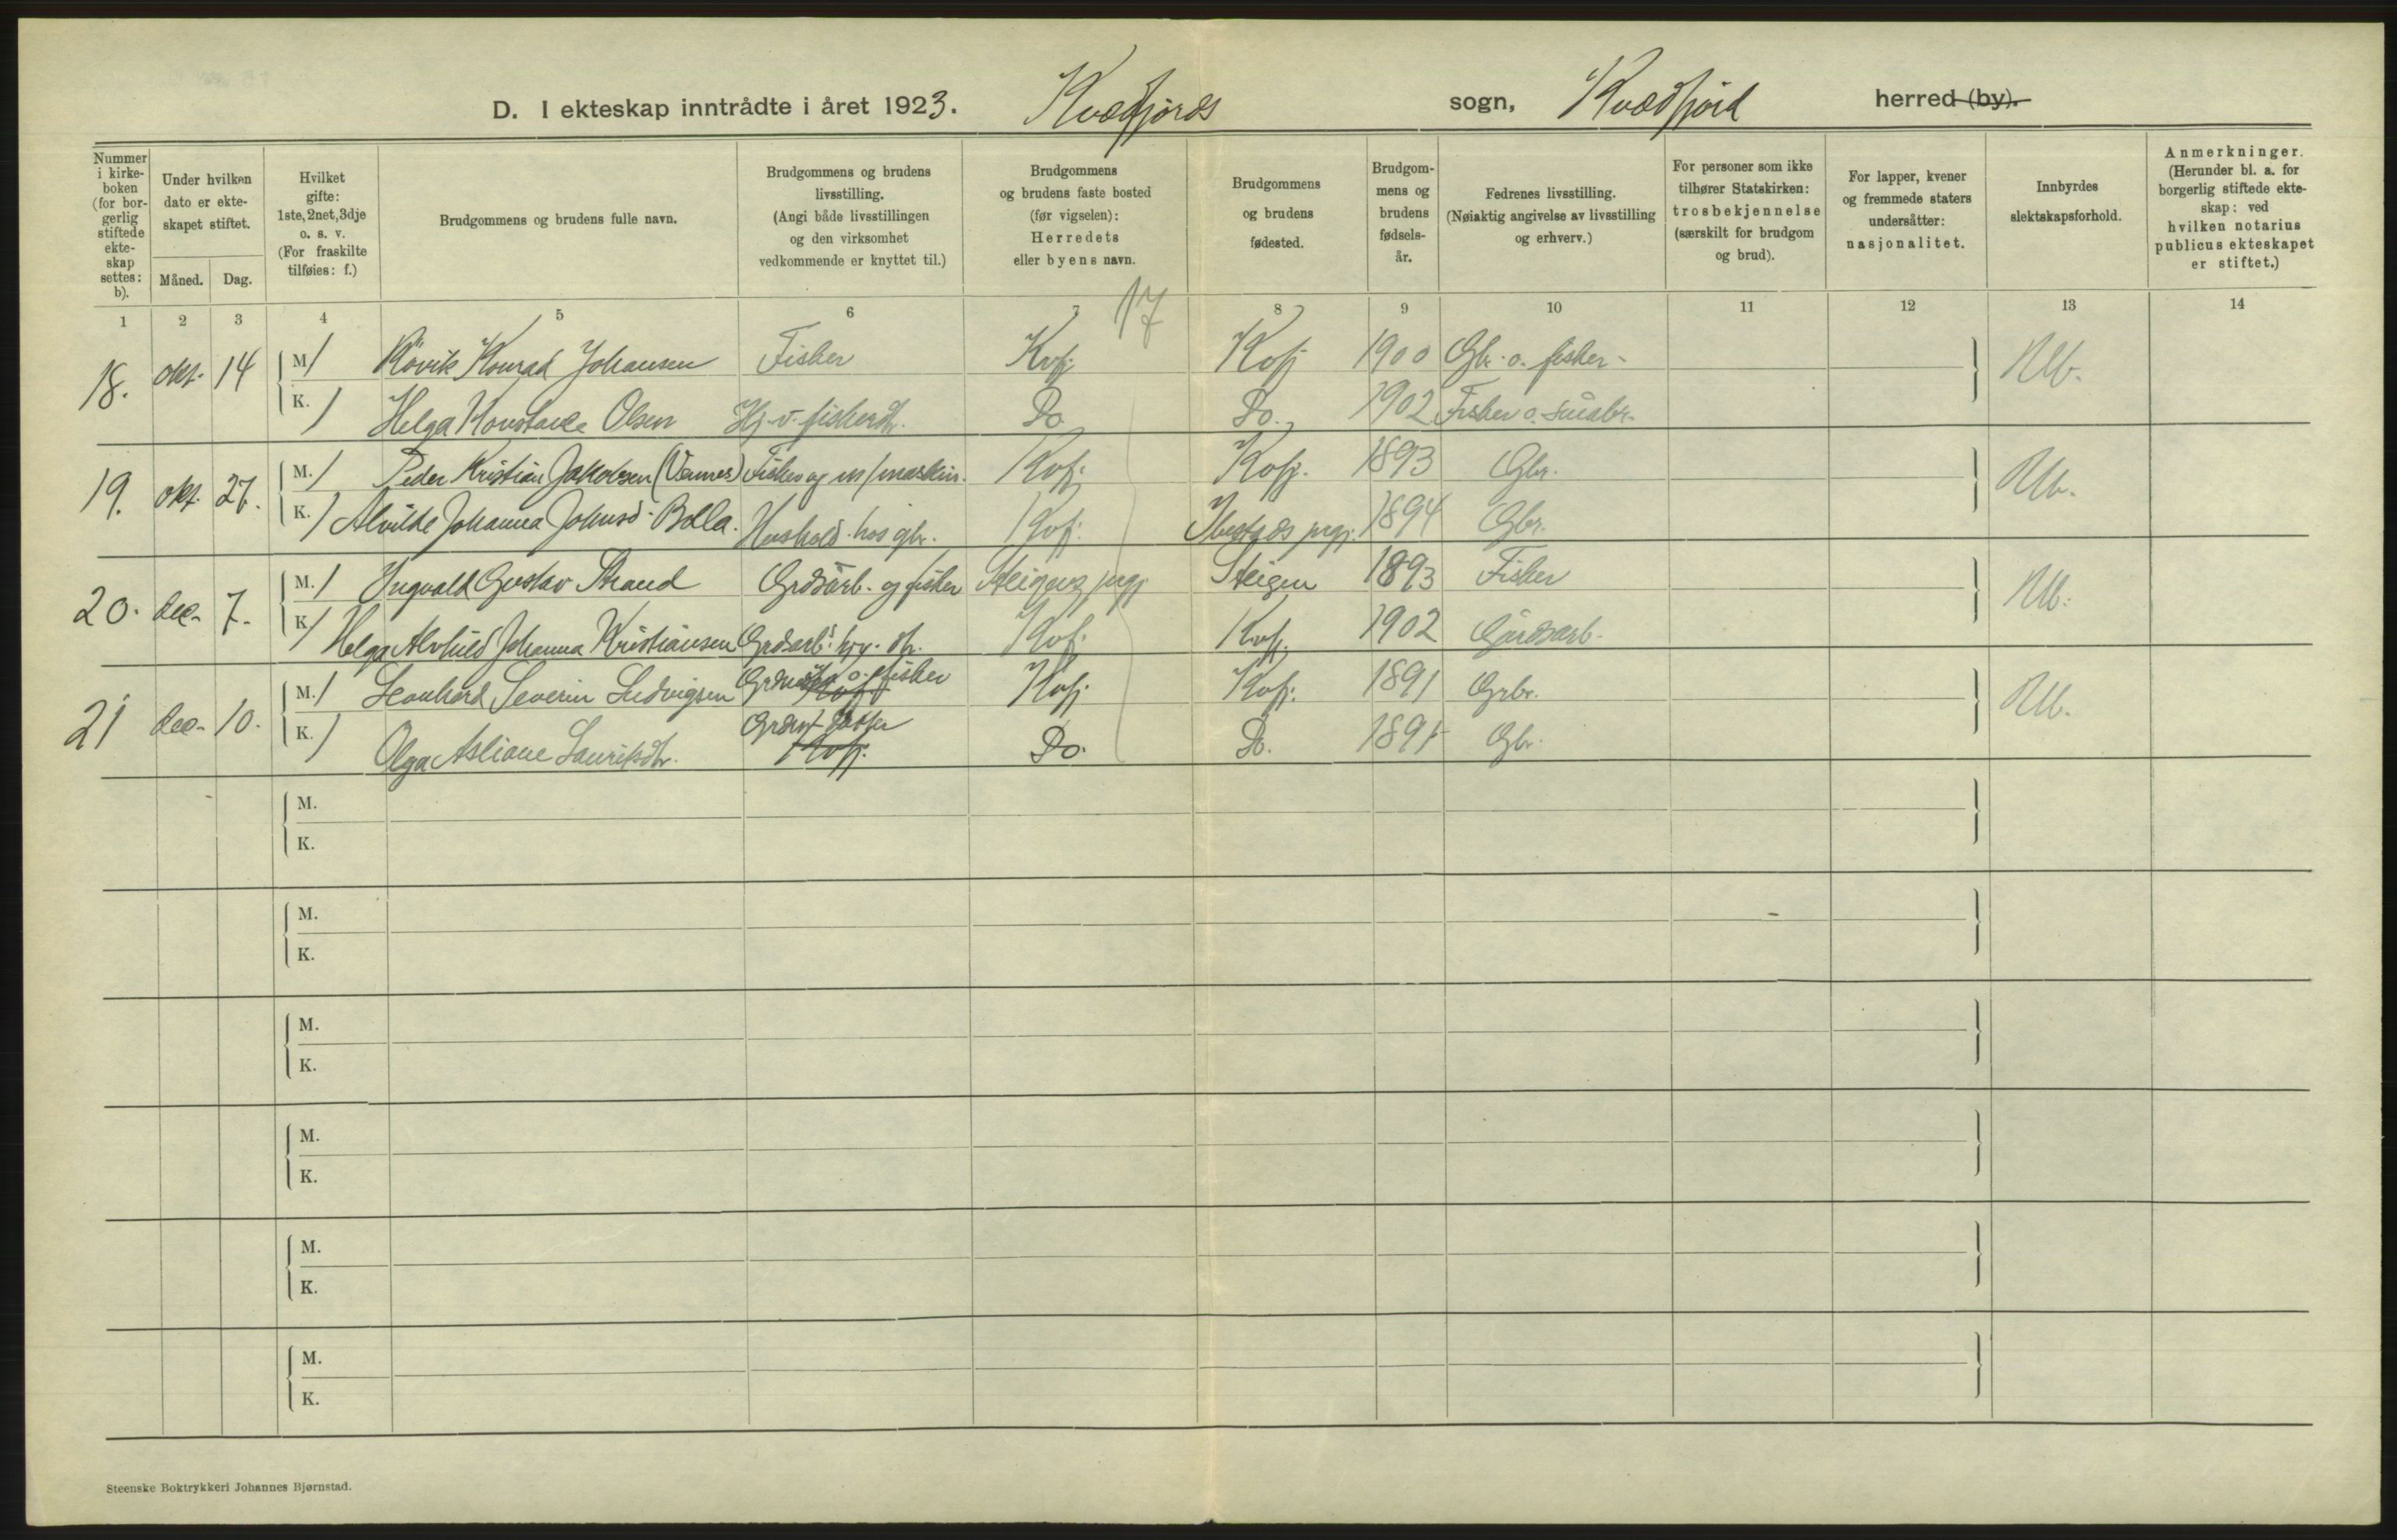 D. I ekteskap inntrådte i året 1923. Kvædfjords sogn, Kvædfjord herred (by).
Nummer i kirkeboken (for borgerlig stiftede ekteskap settes: b).
Under hvilken dato er ekteskapet stiftet.
Måned. Dag.
Hvilket gifte: 1ste, 2net, 3dje o. s. v. (For fraskilte tilføies: f.)
Brudgommens og brudens fulle navn.
Brudgommens og brudens livsstilling. (Angi både livsstillingen og den virksomhet vedkommende er knyttet til.)
Brudgommens og brudens faste bosted (før vigselen): Herredets eller byens navn.
Brudgommens og brudens fødested.
Brudgommens og brudens fødselsår.
Fedrenes livsstilling. (Nøiaktig angivelse av livsstilling og erhverv.)
For personer som ikke tilhører Statskirken: trosbekjennelse (særskilt for brudgom og brud).
For lapper, kvener og fremmede staters undersåtter: nasjonalitet.
Innbyrdes slektskapsforhold.
Anmerkninger. (Herunder bl. a. for borgerlig stiftede ekteskap: ved hvilken notarius publicus ekteskapet er stiftet.)
1 2 3 4 5 6 7 8 9 10 11 12 13 14
17
18. okt. 14 M / Rövik Konrad Johansen Fisker Kvfj Kvfj 1900 Gbr. o. fisker - Ub.
K. / Helga Konstance Olsen Hj. v. fiskerdr. Do Do. 1902 Fisker o. småbr.
19. okt. 27. M. / Peder Kristian Jakobsen (Vennes) Fisker og m/maskin. Kvfj. Kvfj. 1893 Gbr. Ub.
K. / Alvilde Johanna Johnsd. Bolla. Hushold. hos gbr. Kvfj. Ibestads prgj. 1894 Gbr.
20. dec. 7. M. / Ingvald Gustav Strand Grdsarb. og fisker Steigens prgj. Steigen 1893 Fisker Ub.
K / Helga Alvhild Johanna Kristiansen Grdsarb. Kvfj. Kvfj. 1902 Gårdsarb.
21 dec. 10. M. / Leonhard Severin Ludvigsen o. fisker Kvfj. Kvfj. 1891 Grbr. Ub.
K. / Olga Asliane Lauritsdtr. Kvfj. Do. Do. 1891 Gbr.
M.
K.
M.
K.
M.
K.
M.
K.
M.
K.
M.
K.
Steenske Boktrykkeri Johannes Bjørnstad.